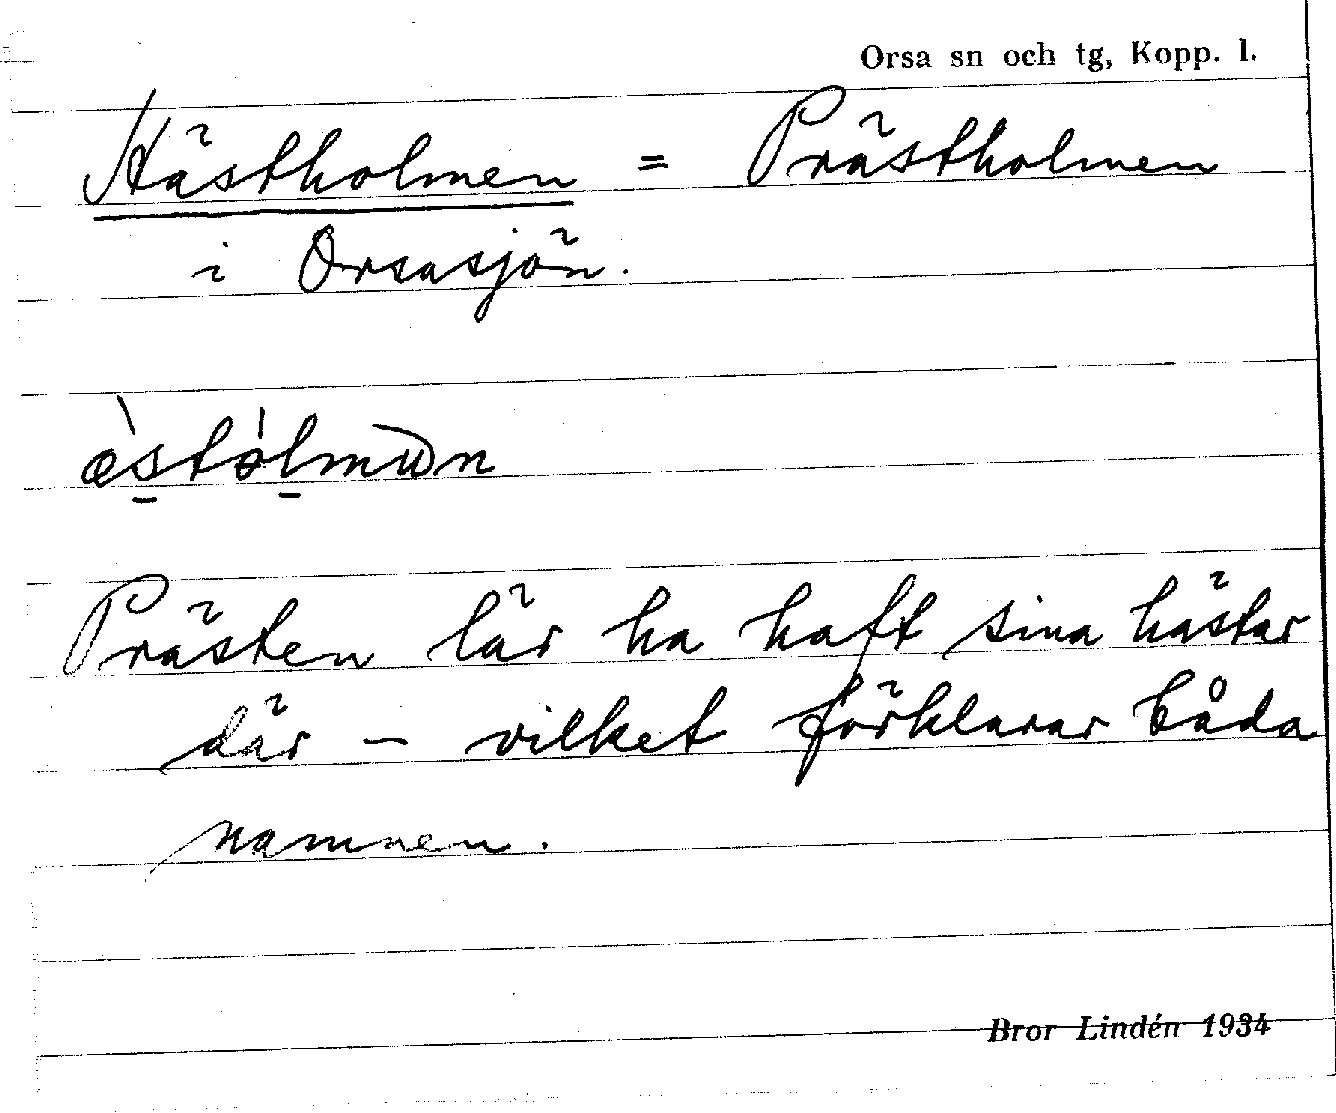 Orsa sn och tg, Kopp. l.
Hästholmen = Prästholmen
i Orsasjön.
Prästen lär ha haft sina hästar
där – vilket förklarar båda
namnen.
Bror Lindén 1934